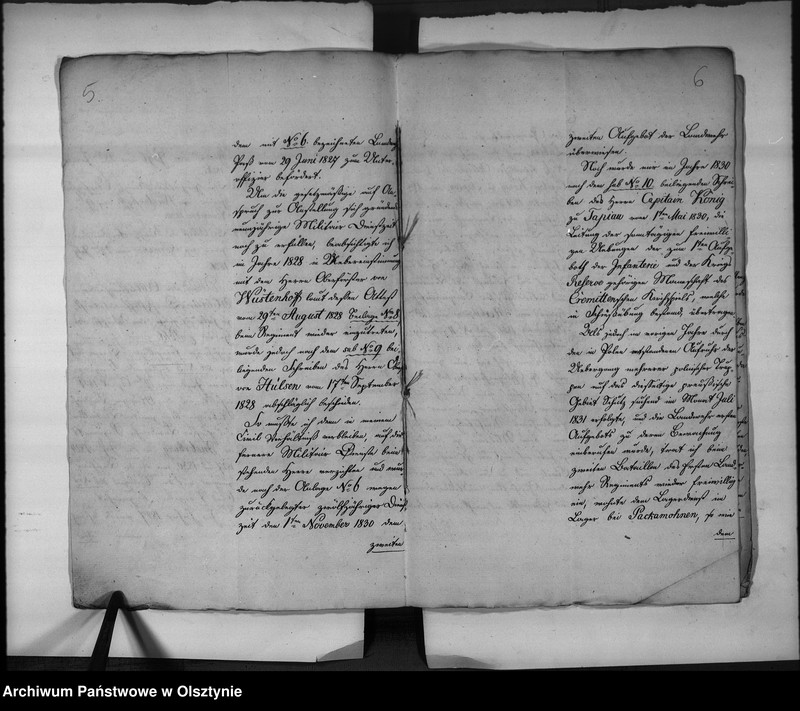 5.
dem mit No 6. bezeichneten Landw.
Paß vom 29 Juni 1827 zum Unter-
offizier befördert.
Um die gesetzmäßige auf An-
spruch zur Anstellung sich gründende
neunjährige Militair Dienstzeit
noch zu erfüllen, beabsichtigte ich
im Jahre 1828 in Uebereinstimmung
mit dem Herrn Oberförster von
Wüstenhoff laut dessen Attest
vom 29ten August 1828 Beilage No 8.
beim Regiment wieder einzutreten,
wurde jedoch nach dem sub No 9 bei-
liegenden Schreiben des Herrn
von Hülsen vom 17ten September
1828 abschläglich beschieden.
So mußte ich denn in meinem
Civil Verhältniß verbleiben, auf die
fernere Militair Dienste beim
stehenden Heere verzichten und wur-
de nach der Anlage No 6 wegen
zurückgelegter zwölfjähriger Dienst
zeit den 1ten November 1830 dem
zweiten
6
zweiten Aufgebot der Landwehr
überwiesen.
Noch wurde mir im Jahre 1830
nach dem sub No 10. beiliegenden Schrei-
ben des Herrn Capitain König
zu Tapiau vom 1ten Mai 1830, die
Leitung der sonntägigen freiwilli-
gen Uebungen der zum 1ten Aufge-
both der Infanterie und der Kriegs
Reserve gehörigen Mannschaft des
Cremittenschen Kirchspiels, welche
in Schießübung bestand, übertragen.
Als jedoch im vorigen Jahre durch
den in Polen entstandenen Aufruhr der
Uebergang mehrerer polnischer Trup-
pen auf das diesseitige preußische
Gebiet Schutz suchend im Monat Juli
1831 erfolgte, und die Landwehr ersten
Aufgebots zu deren Bewachung
einberufen wurde, trat ich beim
zweiten Bataillon des ersten Land-
wehr Regiments wieder freiwillig
ein, wohnte dem Lagerdienst im
Lager bei Packamohnen, so wie
dem
Archiwum Państwowe w Olsztynie